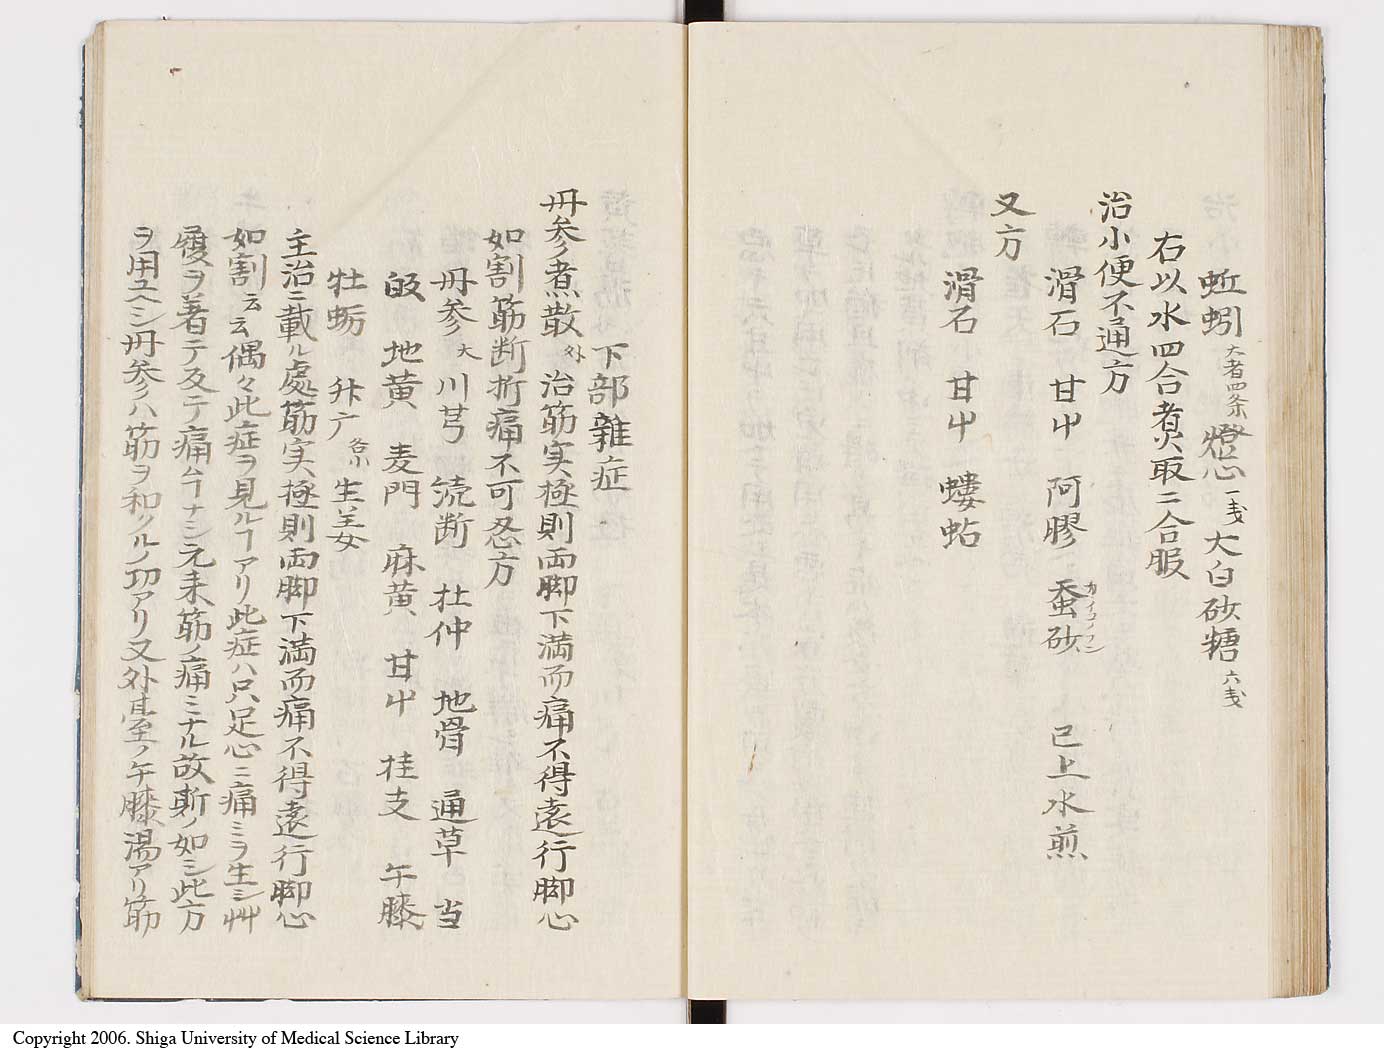 蚯蚓 大者四条 燈心 一戔 大白砂糖 六戔
右以水四合煮取二合服
治小便不通方
滑石 甘屮 阿膠 蚕砂 カイコノフン 已上水煎
又方
滑石 甘屮 螻蛄
下部雜症
丹参煮散 外 治筋実極則両脚下満而痛不得遠行脚心
如割筋断折痛不可忍方
丹参 大 川芎 続断 杜仲 地骨 通草 当
皈 地黄 麦門 麻黄 甘屮 桂支 午膝
牡蛎 升广 各小 生姜
主治ニ載ル處筋実極則両脚下満而痛不得遠行脚心
如割云云偶々此症ヲ見ルヿアリ此症ハ只足心ニ痛ミヲ生シ艸
履ヲ着テ反テ痛ムヿナシ元来筋ノ痛ミナル故斯ノ如シ此方
ヲ用ユヘシ丹参ハ筋ヲ和クルノ功アリ又外臺ノ午膝湯アリ筋
Copyright 2006. Shiga University of Medical Science Library